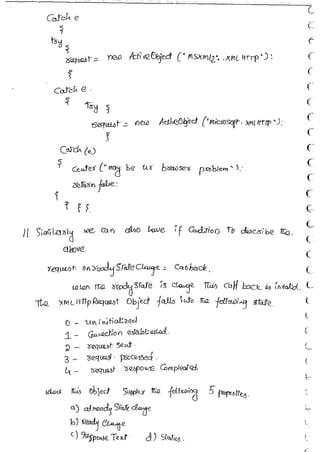 Catch e
{
try {
request = new ActiveObject ("msxml2. .XML HTTP"):
}
Catch e.
{ Try {
request = new ActiveObject ("microsoft. XMLHTTP");
}
Catch (e)
{ ("may be ur browser problem");
return false;
} } }.
// Similarly we can also have if Condition To describe the
above
request on ready State Change = Callback.
when the ready State is change This call back is
The XML HTTP Request Object falls into the following state.
0 - un initialized
1 - Connection established.
2 - request sent.
3 - request processed.
4 - request response Completed
where this object Supply the following 5 properties.
a) already State change
b) ready Change
c) Response Text d) States.